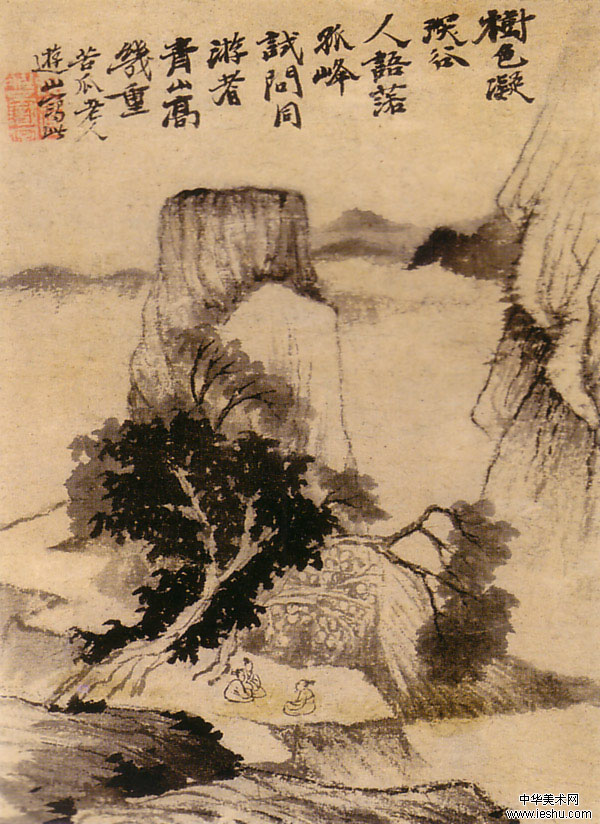 樹色凝
深谷
人語落
孤峰
試問同
游者
青山高
幾重
苦瓜老人
遊山寫此
中华美术网
www.ieshu.com